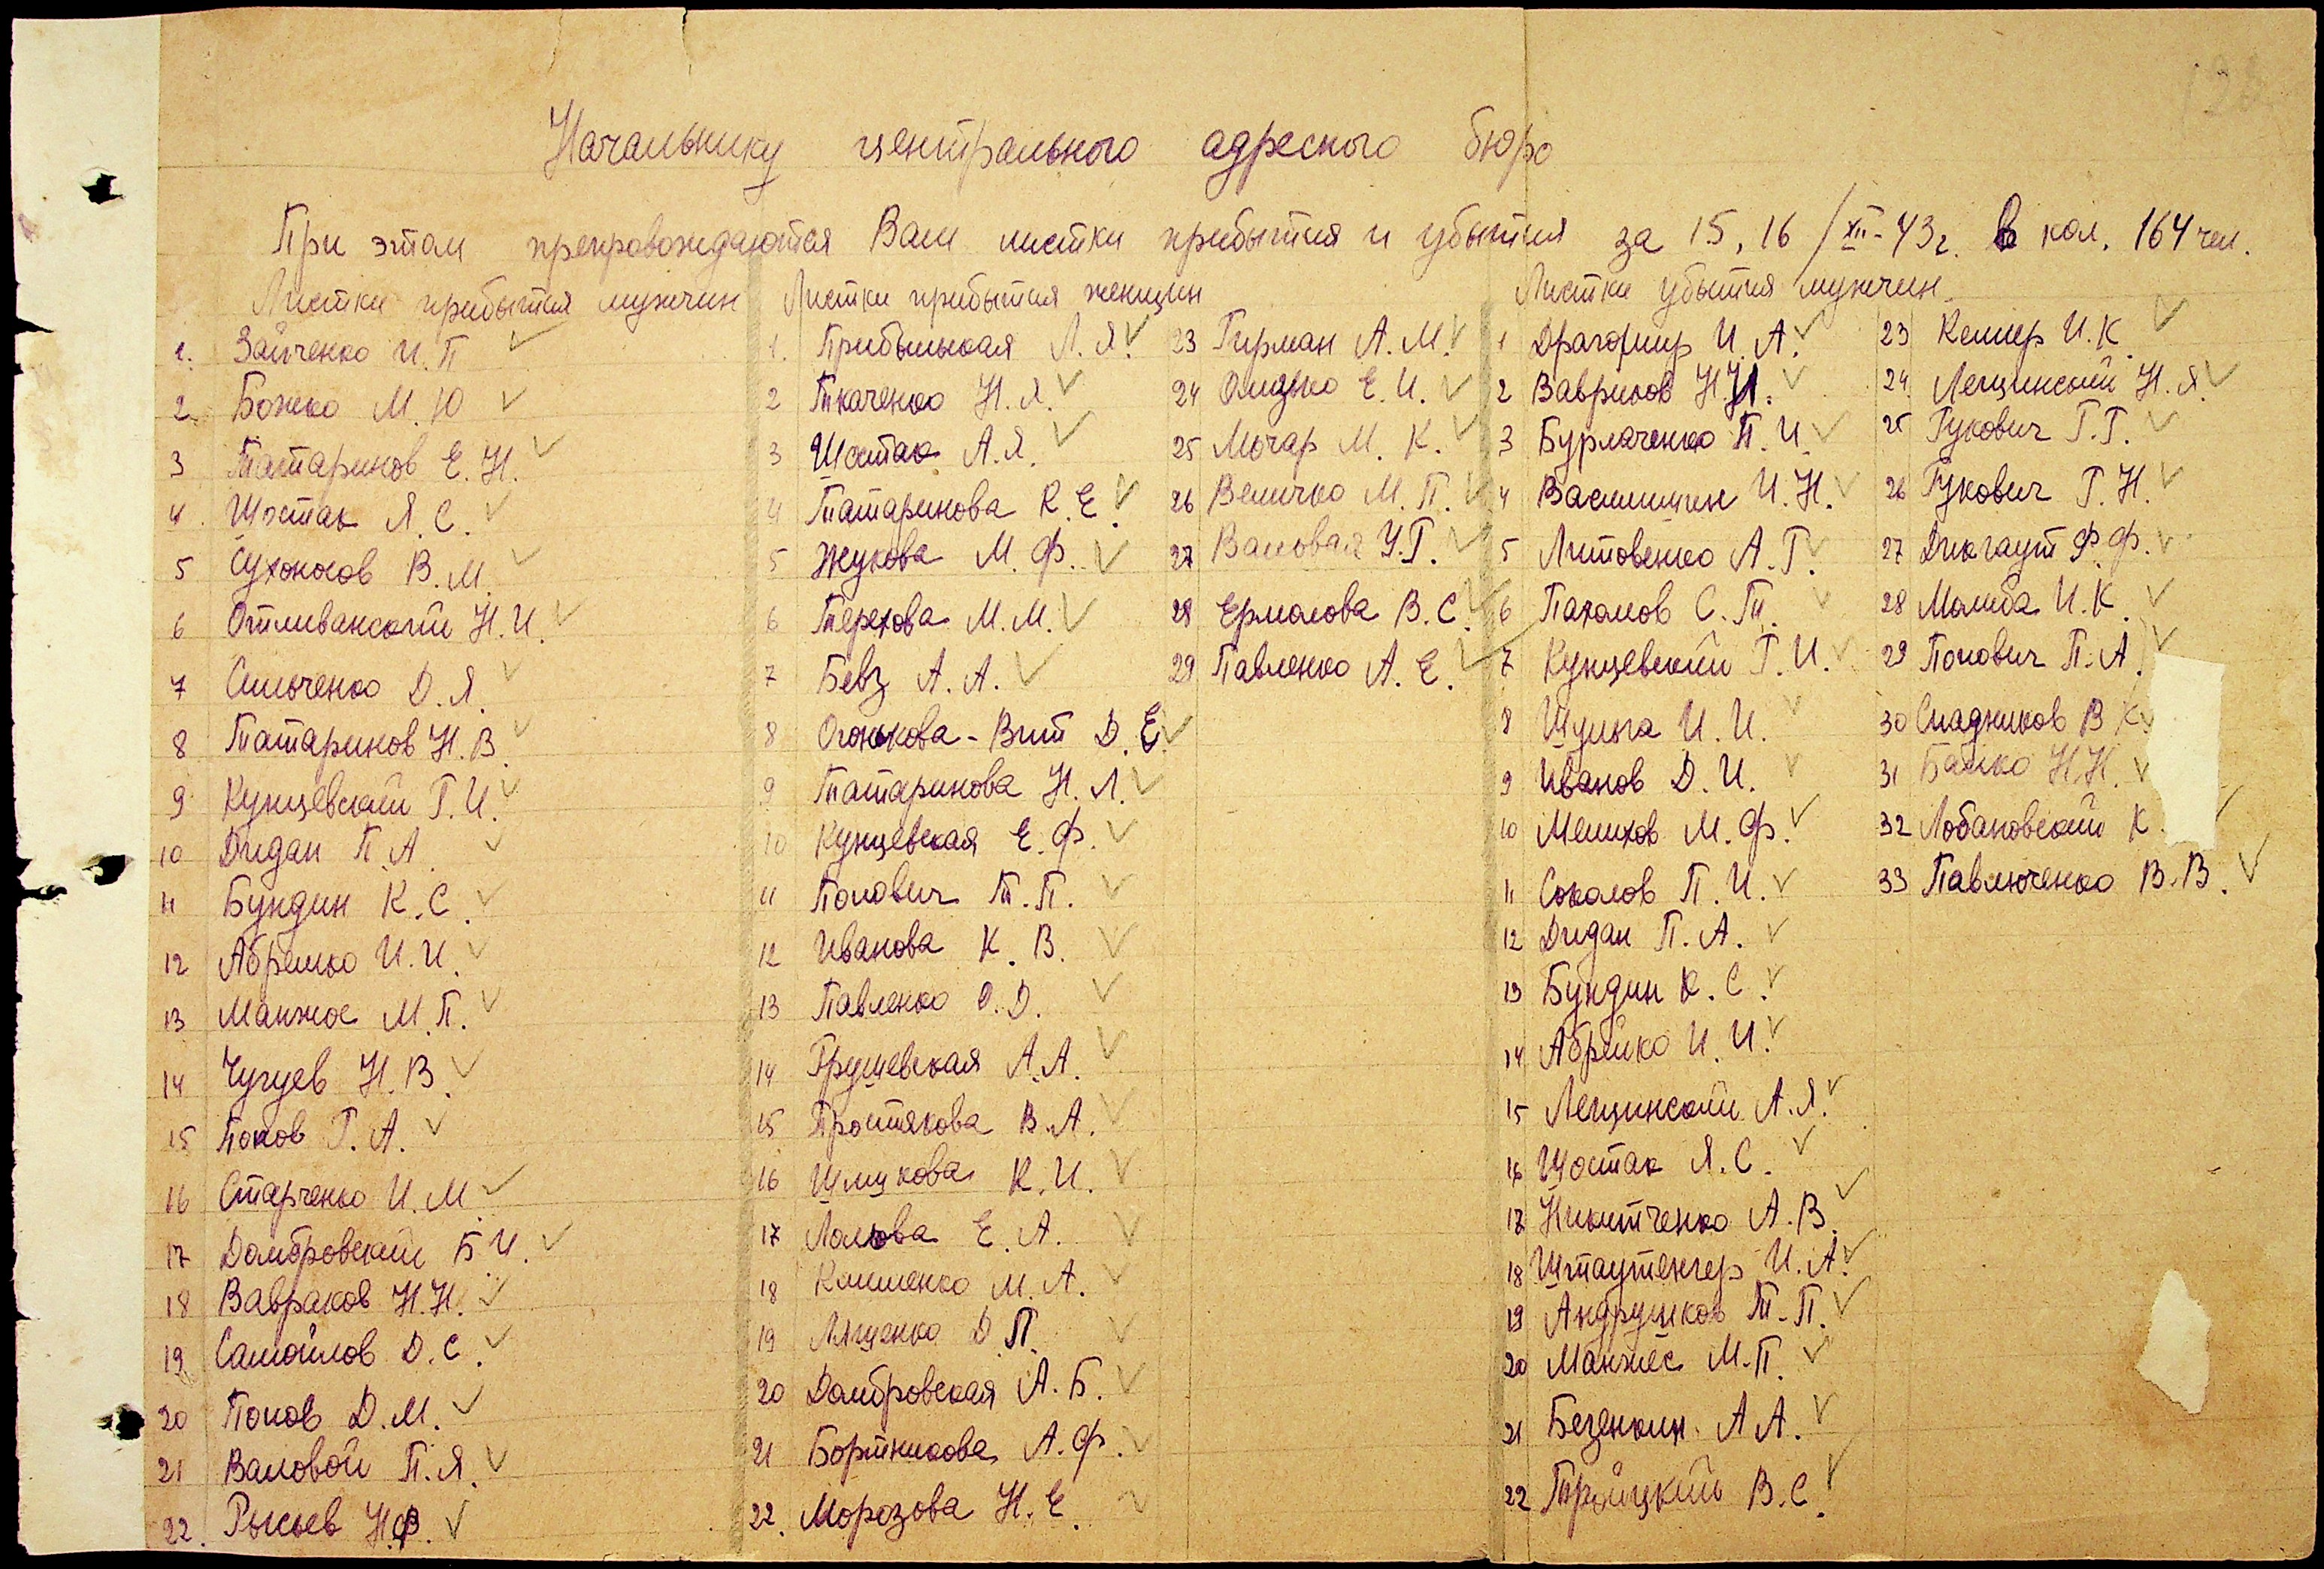 Начальнику центрального адресного бюро
При этом препровождаются Вам листки прибытия и убытия за 15, 16 / XII - 43 г. в кол. 164 чел.
Листки прибытия мужчин
1. Зайченко И. П
2. Божко М. Ю
3 Татаринов Е. Н.
4. Шостак Я. С.
5 Сухоносов В. М.
6 Отливанский Н. И.
7 Сильченко Д. Я.
8 Татаринов Н. В.
9 Кунцевский Г. И.
10 Дидан П. А.
11 Бундин К. С.
12 Абрейко И. И.
13 Манжос М. П.
14 Чугуев Н. В.
15 Попов Г. А.
16 Старченко И. М.
17 Домбровский Б. И.
18 Навраков Н. Н.
19 Самойлов Д. С.
20 Попов Д. М.
21 Валовой П. Я.
22. Рысьев Н. Ф.
Листки прибытия женщин
1. Прибыльская Л. Я.
2 Ткаченко Н. Я.
3 Шостак А. Я.
4 Татаринова К. Е.
5 Жукова М. Ф.
6 Терехова М. М.
7 Бевз А. А.
8 Огонькова - Вит Д. Е.
9 Татаринова Н. Л.
10 Кунцевская Е. Ф.
11 Попович Т. П.
12 Иванова К. В.
13 Павленко О. Д.
14 Грушевская А. А.
15 Простякова В. А.
16 К. И.
17 Е. А.
18 Клименко М. А.
19 Лященко Д. П.
20 Домбровская А. Б.
21 Бортникова А. Ф.
22. Морозова Н. Е.
23 Гирман А. М.
24 Е. И.
25 Мочар М. К.
26 Величко М. П.
27 Валовая У. Г.
28 Ермолова В. С.
29 Павленко А. Е.
Листки убытия мужчин
1 Драгомир И. А.
2 Вавриков Н. И.
3 Бурлаченко П. И.
4 Василишин И. Н.
5 Литовенко А. Г.
6 Пахомов С. Т.
7 Кунцевский Г. И.
8 Шульга И. И.
9 Иванов Д. И.
10 Мелихов М. Ф.
11 Соколов П. И.
12 Дидан П. А.
13 Бундин К. С.
14 Абрейко И. И.
15 Лещинский А. Я.
16 Шостак Я. С.
17 Никитченко А. В.
18 Штаутенгер И. А.
19 Андрушков Т. П.
20 Манжес М. П.
21 А. А.
22 Тройцкий В. С.
23 Келлер И. К.
24 Лещинский Н. Я.
25 Гукович Г. Г.
26 Гукович Г. Н.
27 Дикгаут Ф. Ф.
28 Малиба И. К.
29 Попович П. А.
30 Сладников В. К.
31 Байко Н. Н.
32 Лобановский К
33 Павлюченко В. В.